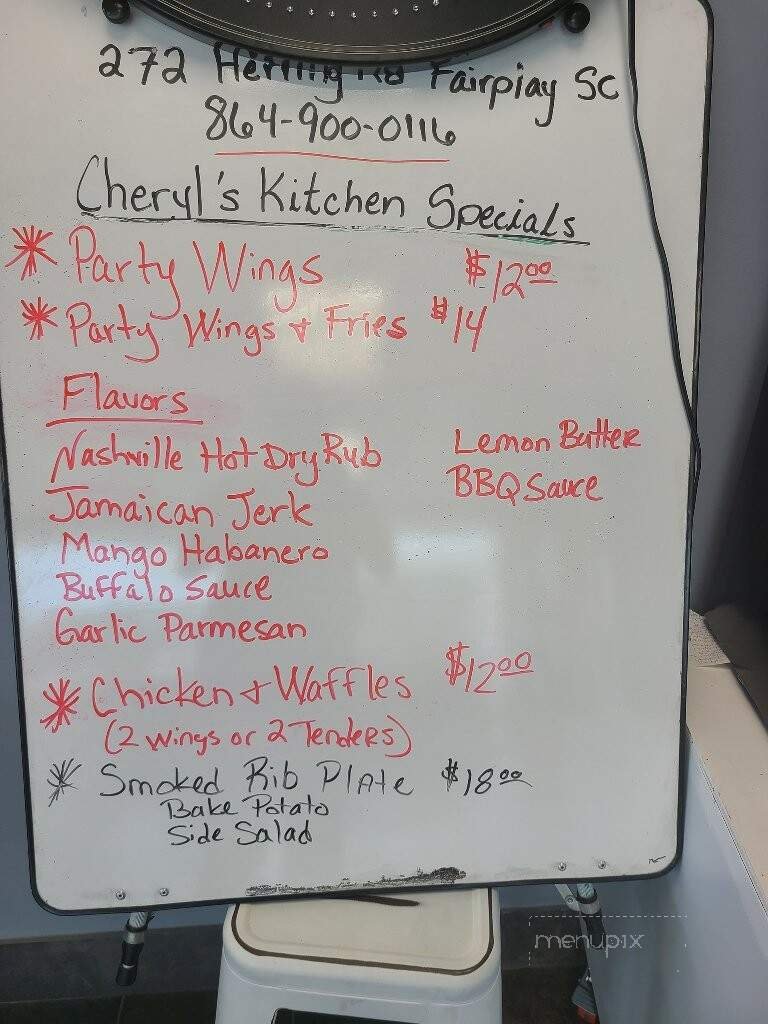 272 Herring Rd Fairplay SC
864-900-0116
Cheryl's Kitchen Specials
Party Wings $12.00
Party Wings & Fries $14
Flavors
Nashville Hot Dry Rub
Jamaican Jerk
Mango Habanero
Buffalo Sauce
Garlic Parmesan
Lemon Butter
BBQ Sauce
Chicken & Waffles $12.00
(2 Wings or 2 Tenders)
Smoked Rib Plate $18.00
Bake Potato
Side Salad
menupix